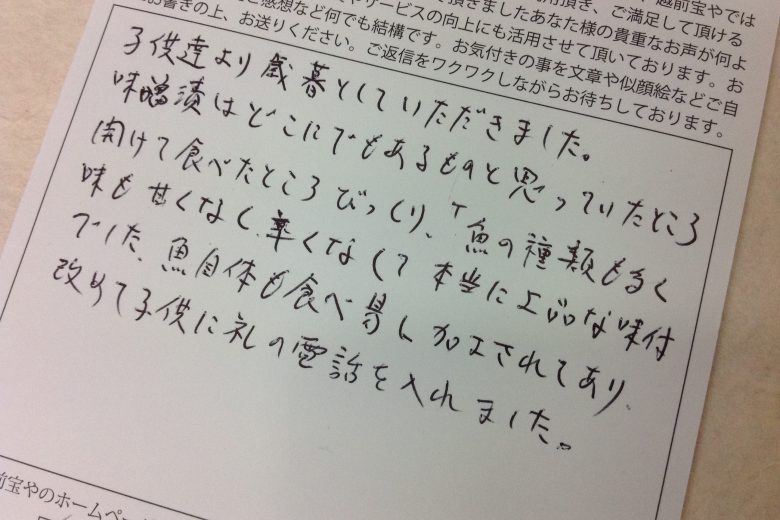 越前宝やでは
用頂き、ご満足して頂ける
て頂きましたあなた様の貴重なお声が何よ
サービスの向上にも活用させて頂いております。お
ご感想など何でも結構です。お気付きの事を文章や似顔絵などご自
お書きの上、お送りください。ご返信をワクワクしながらお待ちしております。
子供達より歳暮としていただきました。
味噌漬はどこにでもあるものと思っていたところ
開けて食べたところびっくり、魚の種類も多く
味も甘くなく辛くなくて本当に上品な味付
でした、魚自体も食べ易く加工されてあり、
改めて子供に礼の電話を入れました。
前宝やのホームペー